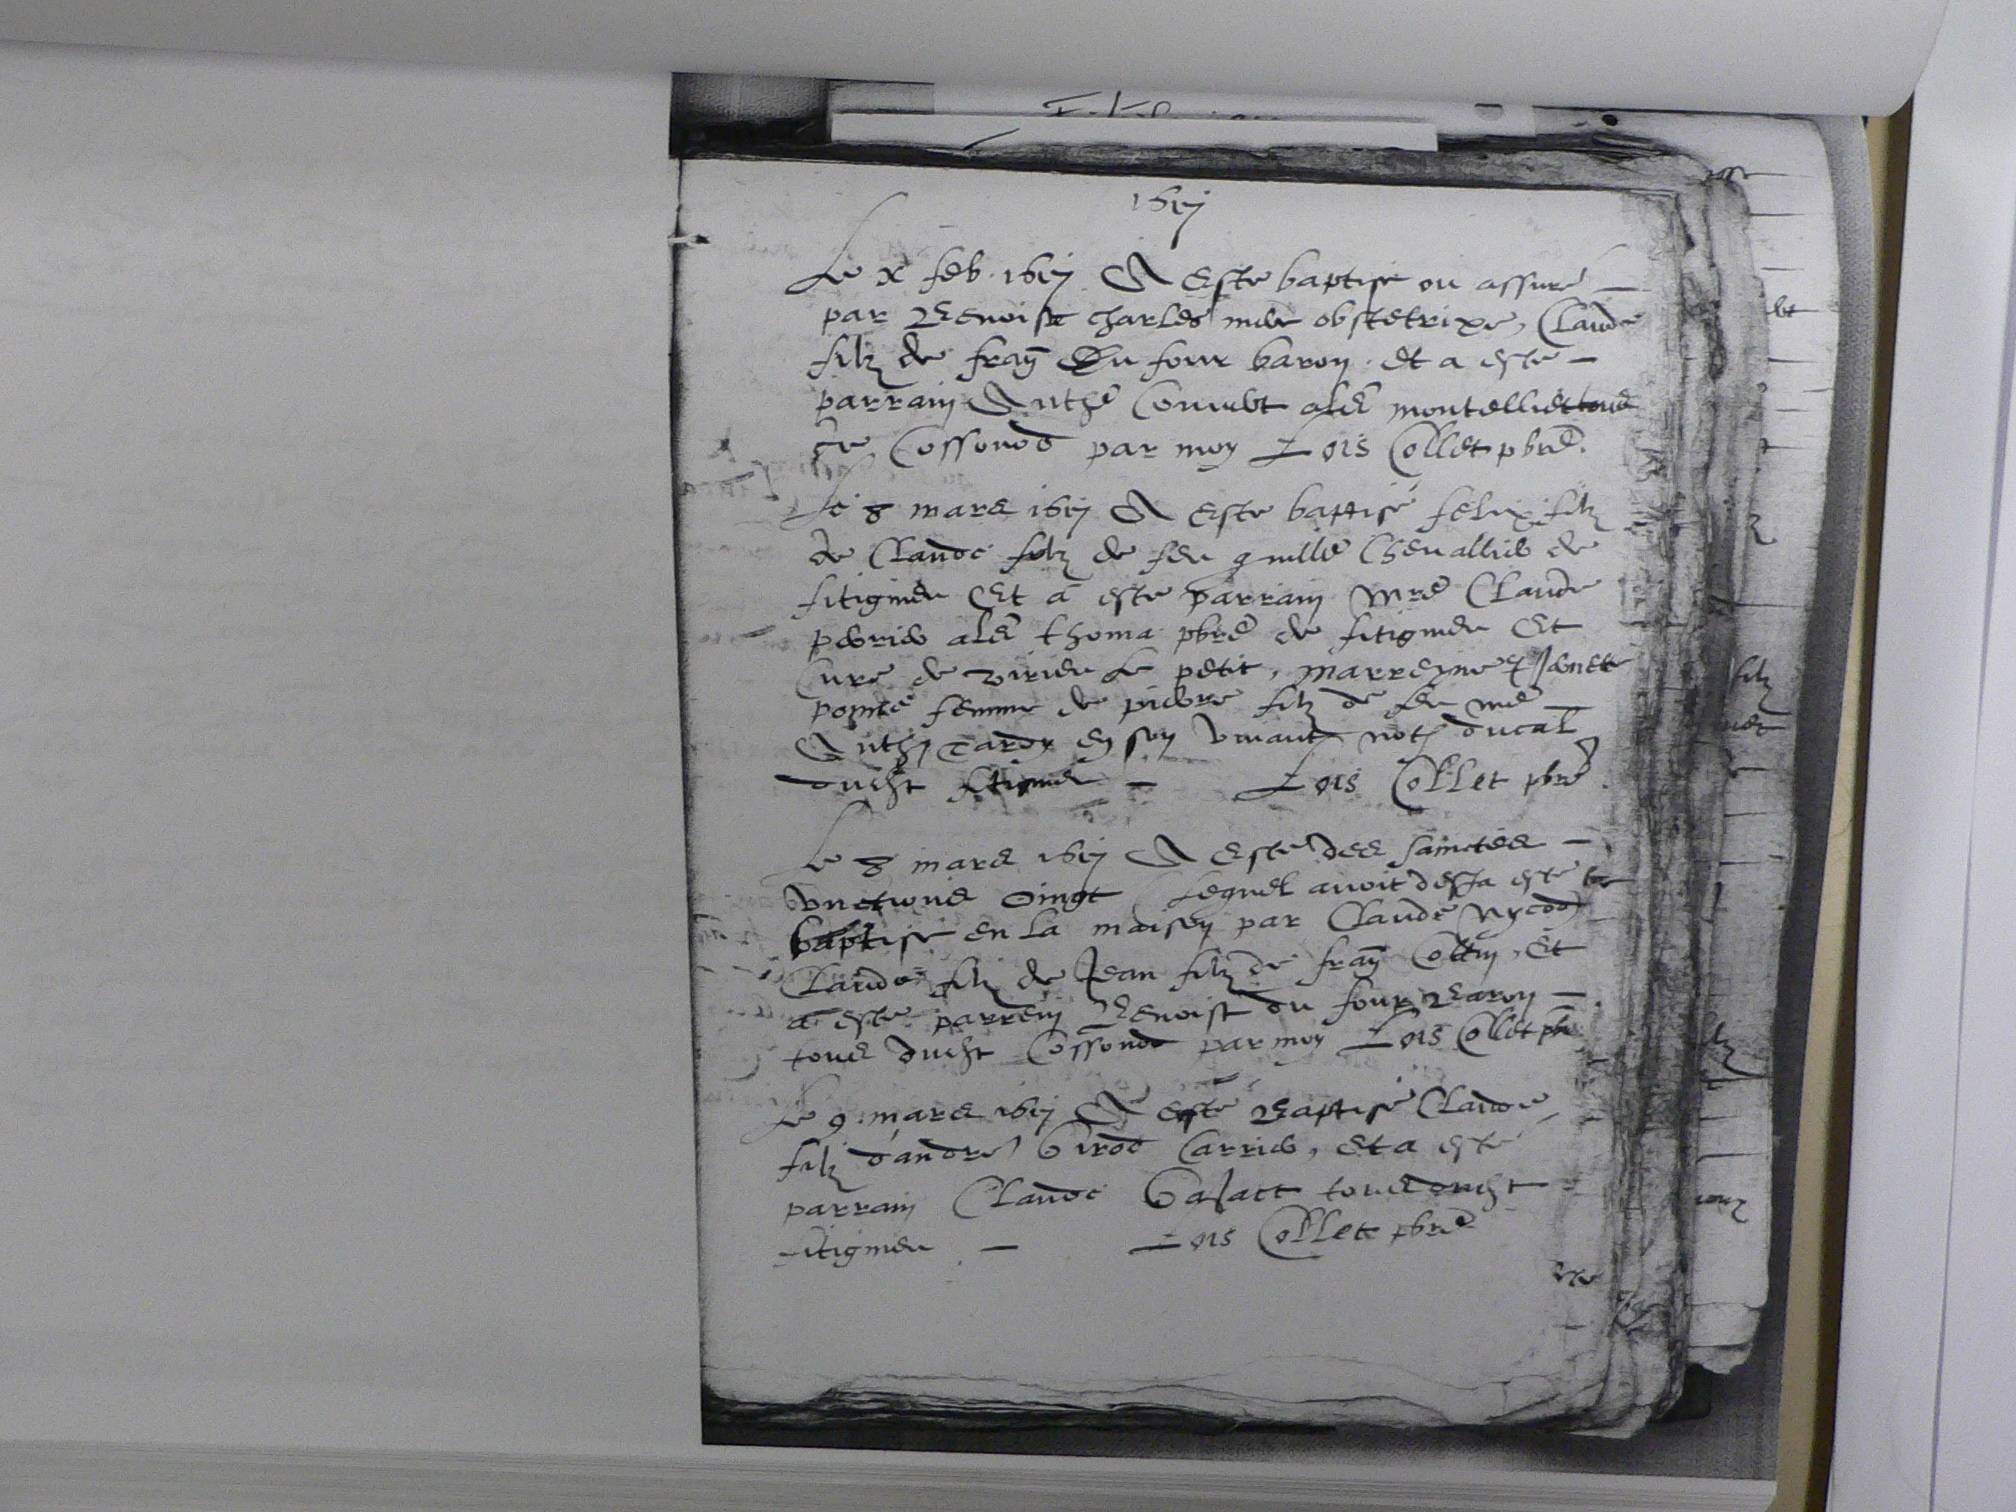 161ij
Le x feb. 161ij A Este baptise ou assuré
par Benoiste charles obstetrixe, Claude
filz de frań Du four baron. Et a este
parrain Anthẽ alẽ montelliet tous
de Cossonod par moy Loïs Collet pbrẽ.
Le 8 mars 161ij A Este baptisé felix filz
de Claude filz de feu guillẽ Chevallier de
fitignieu Et a este parrain Mrẽ Claude
perrier alẽ thoma pbrẽ de fitignieu Et
Curé de virieu le petit, marreyne
femme de pierre filz de feu mẽ
Anth. Tardy en son vivant not. ducal
dudit fitignieu Loïs Collet pbrẽ.
Le 8 mars 161ij A Este des sainctes
Unctions oingt Lequel avoit desja este
baptise en la maison par Claude Nycod
Claude filz de Jean filz de frań Collin, Et
a este parrein Benoist du four Baron
tous dudit Cossonod par moy Loïs Collet pbr
Le 9 mars 161ij A este Baptisé Claude
filz d'andré Girod Carrier, Et a esté
parrain Claude tous dudit
fitignieu Loïs Collet pbrẽ
filz